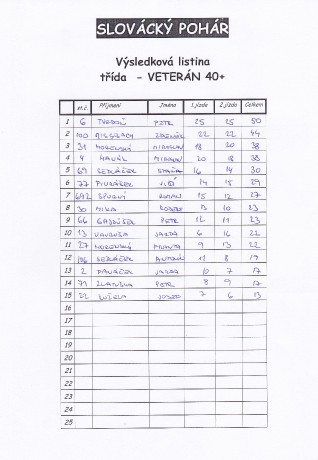 SLOVÁCKÝ POHÁR
Výsledková listina
třída - VETERÁN 40+
st.č. Příjmení Jméno 1.jízda 2.jízda Celkem
1 6 PETR 25 25 50
2 100 ZDENĚK 22 22 44
3 31 MIROSLAV 18 20 38
4 4 HAVEL MIROSLAV 20 18 38
5 69 SEDLÁČEK 16 14 30
6 77 14 15 29
7 692 ROMAN 15 12 27
8 30 MIKA ROBERT 13 10 23
9 66 GAJDŮŠEK PETR 12 11 23
10 13 VAVRUŠA JARDA 6 16 22
11 27 9 13 22
12 106 SEDLÁČEK ANTONÍN 11 8 19
13 2 JARDA 10 7 17
14 71 PETR 8 9 17
15 22 KUŽELA JOSEF 7 6 13
16
17
18
19
20
21
22
23
24
25